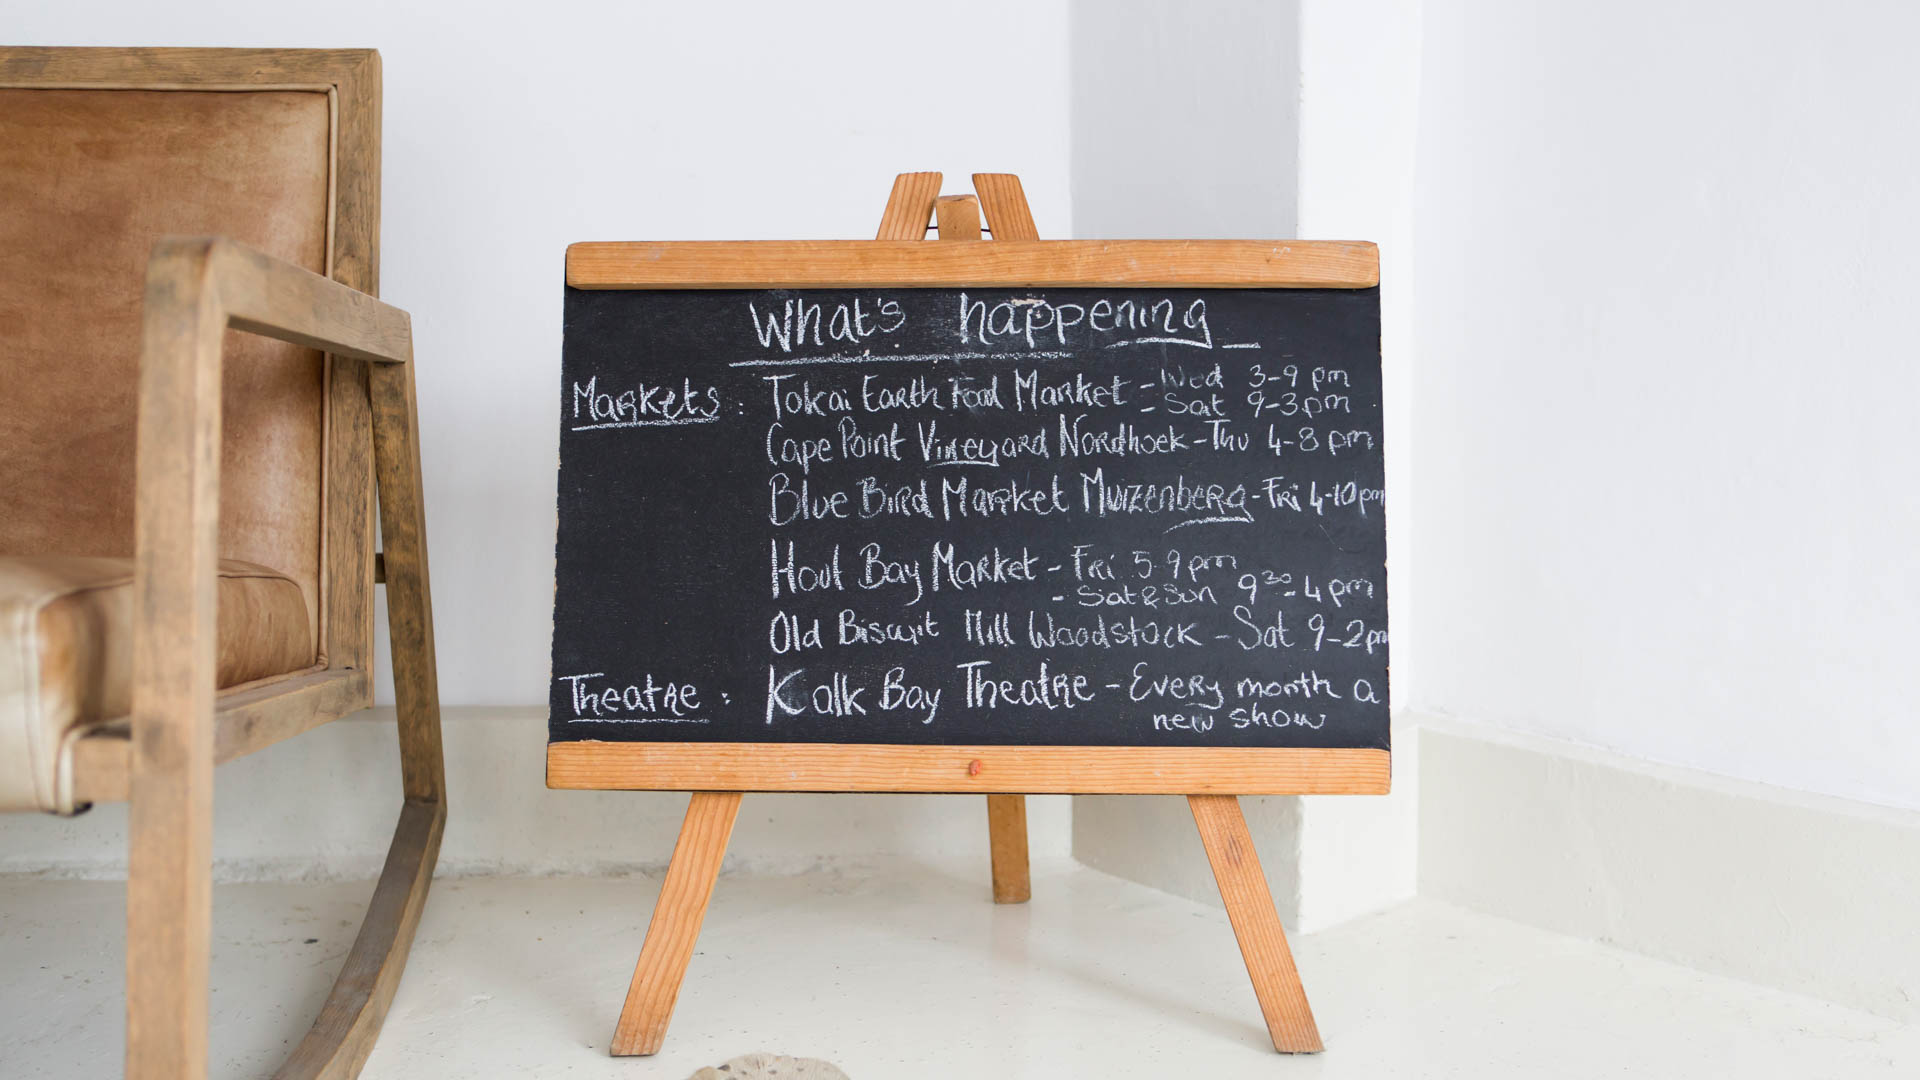 What's happening
Markets : Tokai Earth Food Market - Wed 3-9 pm
- Sat 9-3pm
Cape Point Vineyard Nordhoek - Thu 4-8 pm
Blue Bird Market Muizenberg - Fri 4-10pm
Hout Bay Market - Fri 5-9pm
- Sat & Sun 9³⁰-4pm
Old Biscuit Mill Woodstock - Sat 9-2pm
Theatre : Kalk Bay Theatre - Every month a
new show